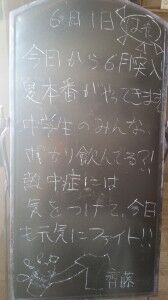 6月1日
今日から6月突入
夏本番がやってきます
中学生のみんな、
ガッツリ飲んでる?!
熱中症には
気をつけて、今日
も元気にファイト!!
齊藤